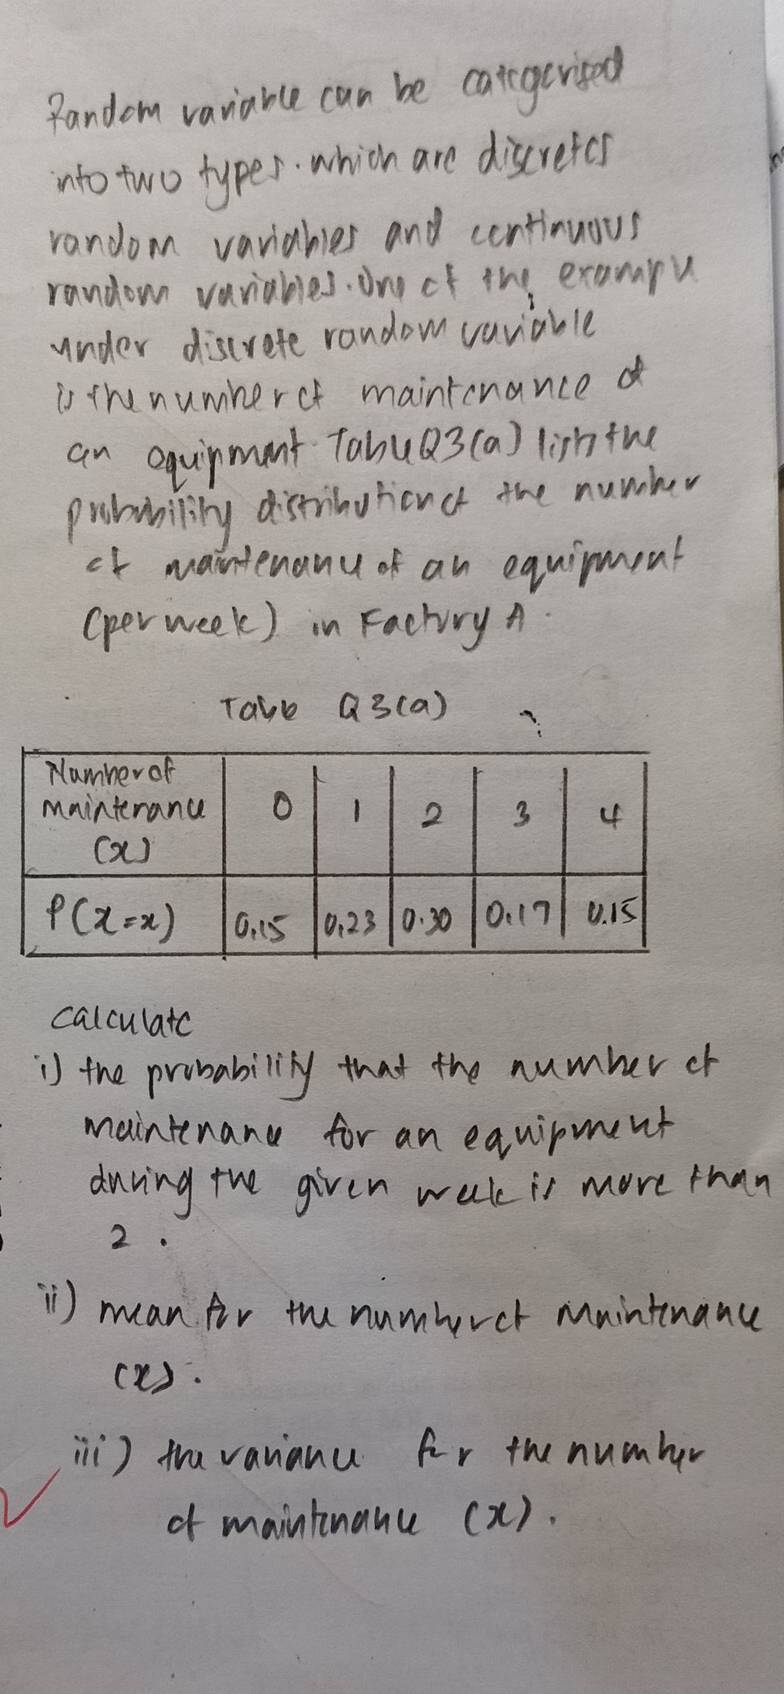 Random variable can be categorised
into two types. which are discretes
random variables and continuous
random variables. One of the example
under discrete random variable
is the number of maintenance of
an equipment. Table Q3(a) lists the
probability distribution of the number
of maintenance of an equipment
(per week) in Factory A.
Table Q3(a)
Number of
maintenance
(x)
0 1 2 3 4
P(x=x) 0.15 0.23 0.30 0.17 0.15
calculate
i) the probability that the number of
maintenance for an equipment
during the given week is more than
2.
ii) mean for the number of maintenance
(x).
iii) the variance for the number
of maintenance (x).